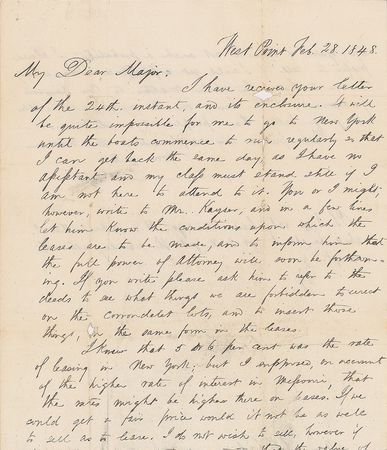 West Point Feb. 28. 1848.
My Dear Major:
I have received your letter
of the 24th. instant, and its enclosure. It will
be quite impossible for me to go to New York
until the boats commence to run regularly so that
I can get back the same day, as I have no
assistant and my class must stand still if I
am not here to attend to it. You or I might,
however, write to Mr. Kayser, and in a few lines
let him know the conditions upon which the
leases are to be made, and to inform him that
the full power of Attorney will soon be forthcom-
ing. If you write please ask him to refer to the
deeds to see what things we are forbidden to erect
on the Carrondolet lots, and to insert those
things, in the same form in the leases.
I knew that 5 or 6 per cent was the rate
of leasing in New York; but I supposed, on account
of the higher rate of interest in Missouri, that
the rates might be higher there on leases. If we
could get a fair price would it not be as well
to sell as to lease. I do not wish to sell, however if
the value of